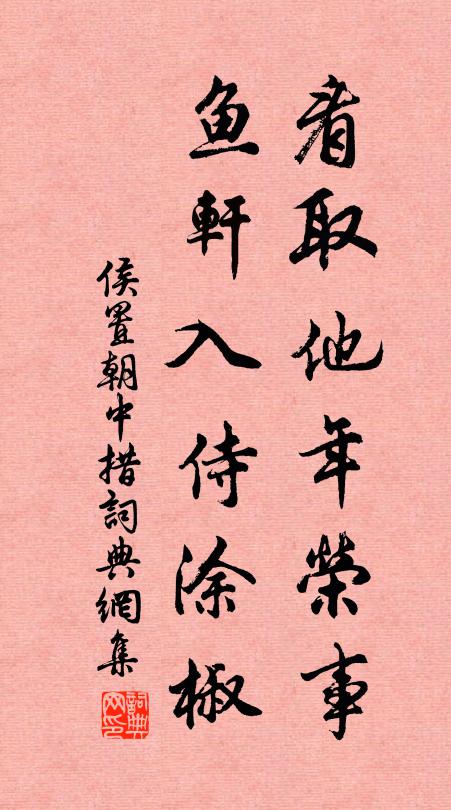 看取他年榮事
魚軒入侍涂椒
侯置朝中措詞典網集
詞典网印